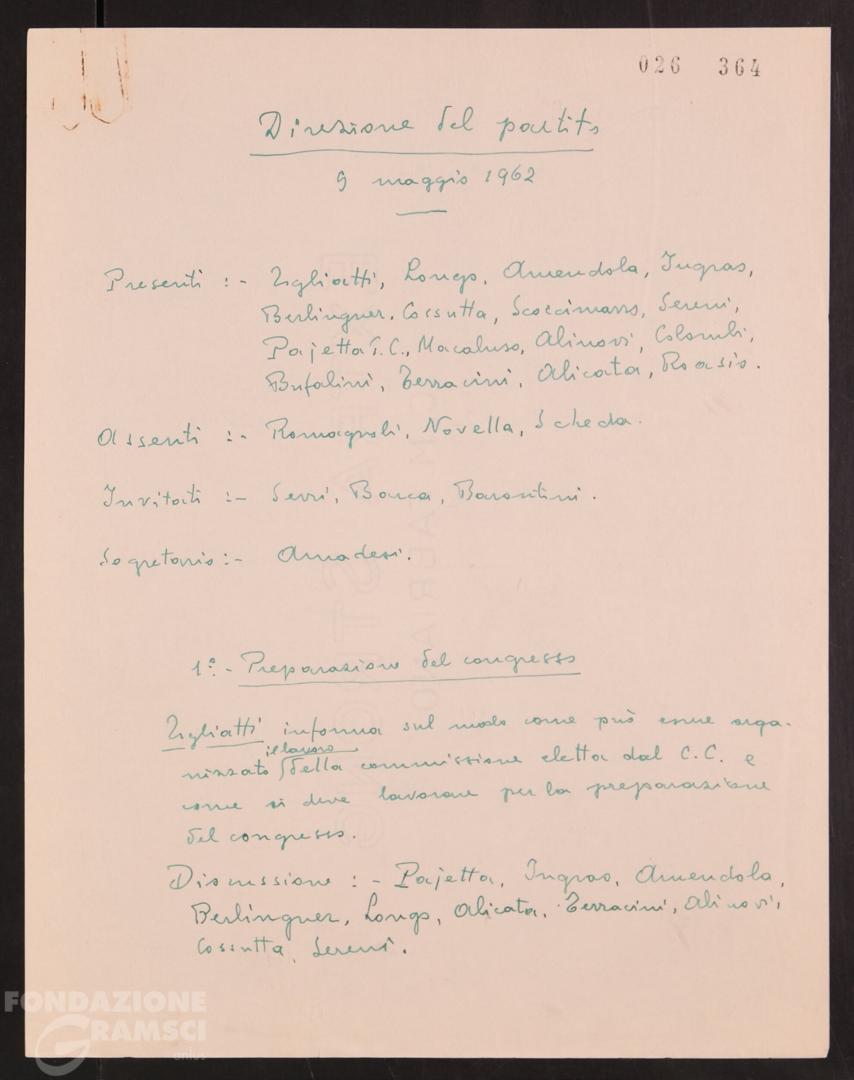 026 364
Direzione del partito
9 maggio 1962
Presenti :- Togliatti, Longo, Amendola, Ingrao,
Berlinguer, Cossutta, Scoccimarro, Sereni,
Pajetta G.C., Macaluso, Alinovi, Colombi,
Bufalini, Terracini, Alicata, Roasio.
Assenti :- Romagnoli, Novella, Scheda.
Invitati :- Serri, Barca, Barontini.
Segretario :- Amadesi.
1º.- Preparazione del congresso
Togliatti informa sul modo come può essere orga-
il lavoro
nizzato della commissione eletta dal C.C. e
come si deve lavorare per la preparazione
del congresso.
Discussione :- Pajetta, Ingrao, Amendola,
Berlinguer, Longo, Alicata, Terracini, Alinovi,
Cossutta, Sereni.
FONDAZIONE
GRAMSCI
onlus